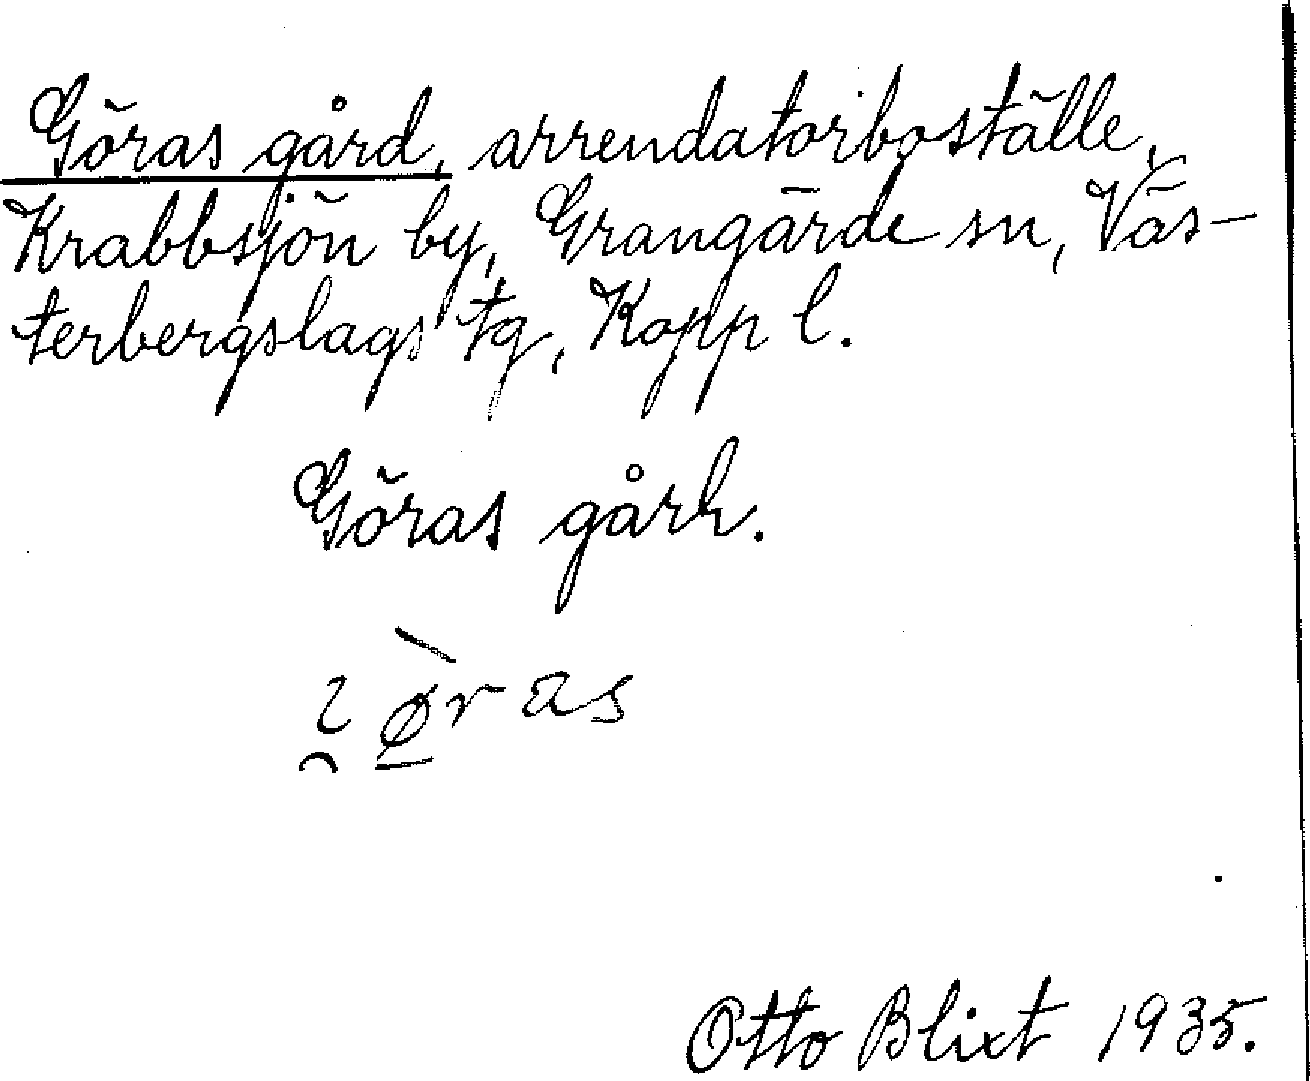 Göras gård, arrendatorboställe,
Krabbsjön by, Grangärde sn, Väs-
terbergslags tg, Kopp l.
Göras gårk.
Otto Blixt 1935.